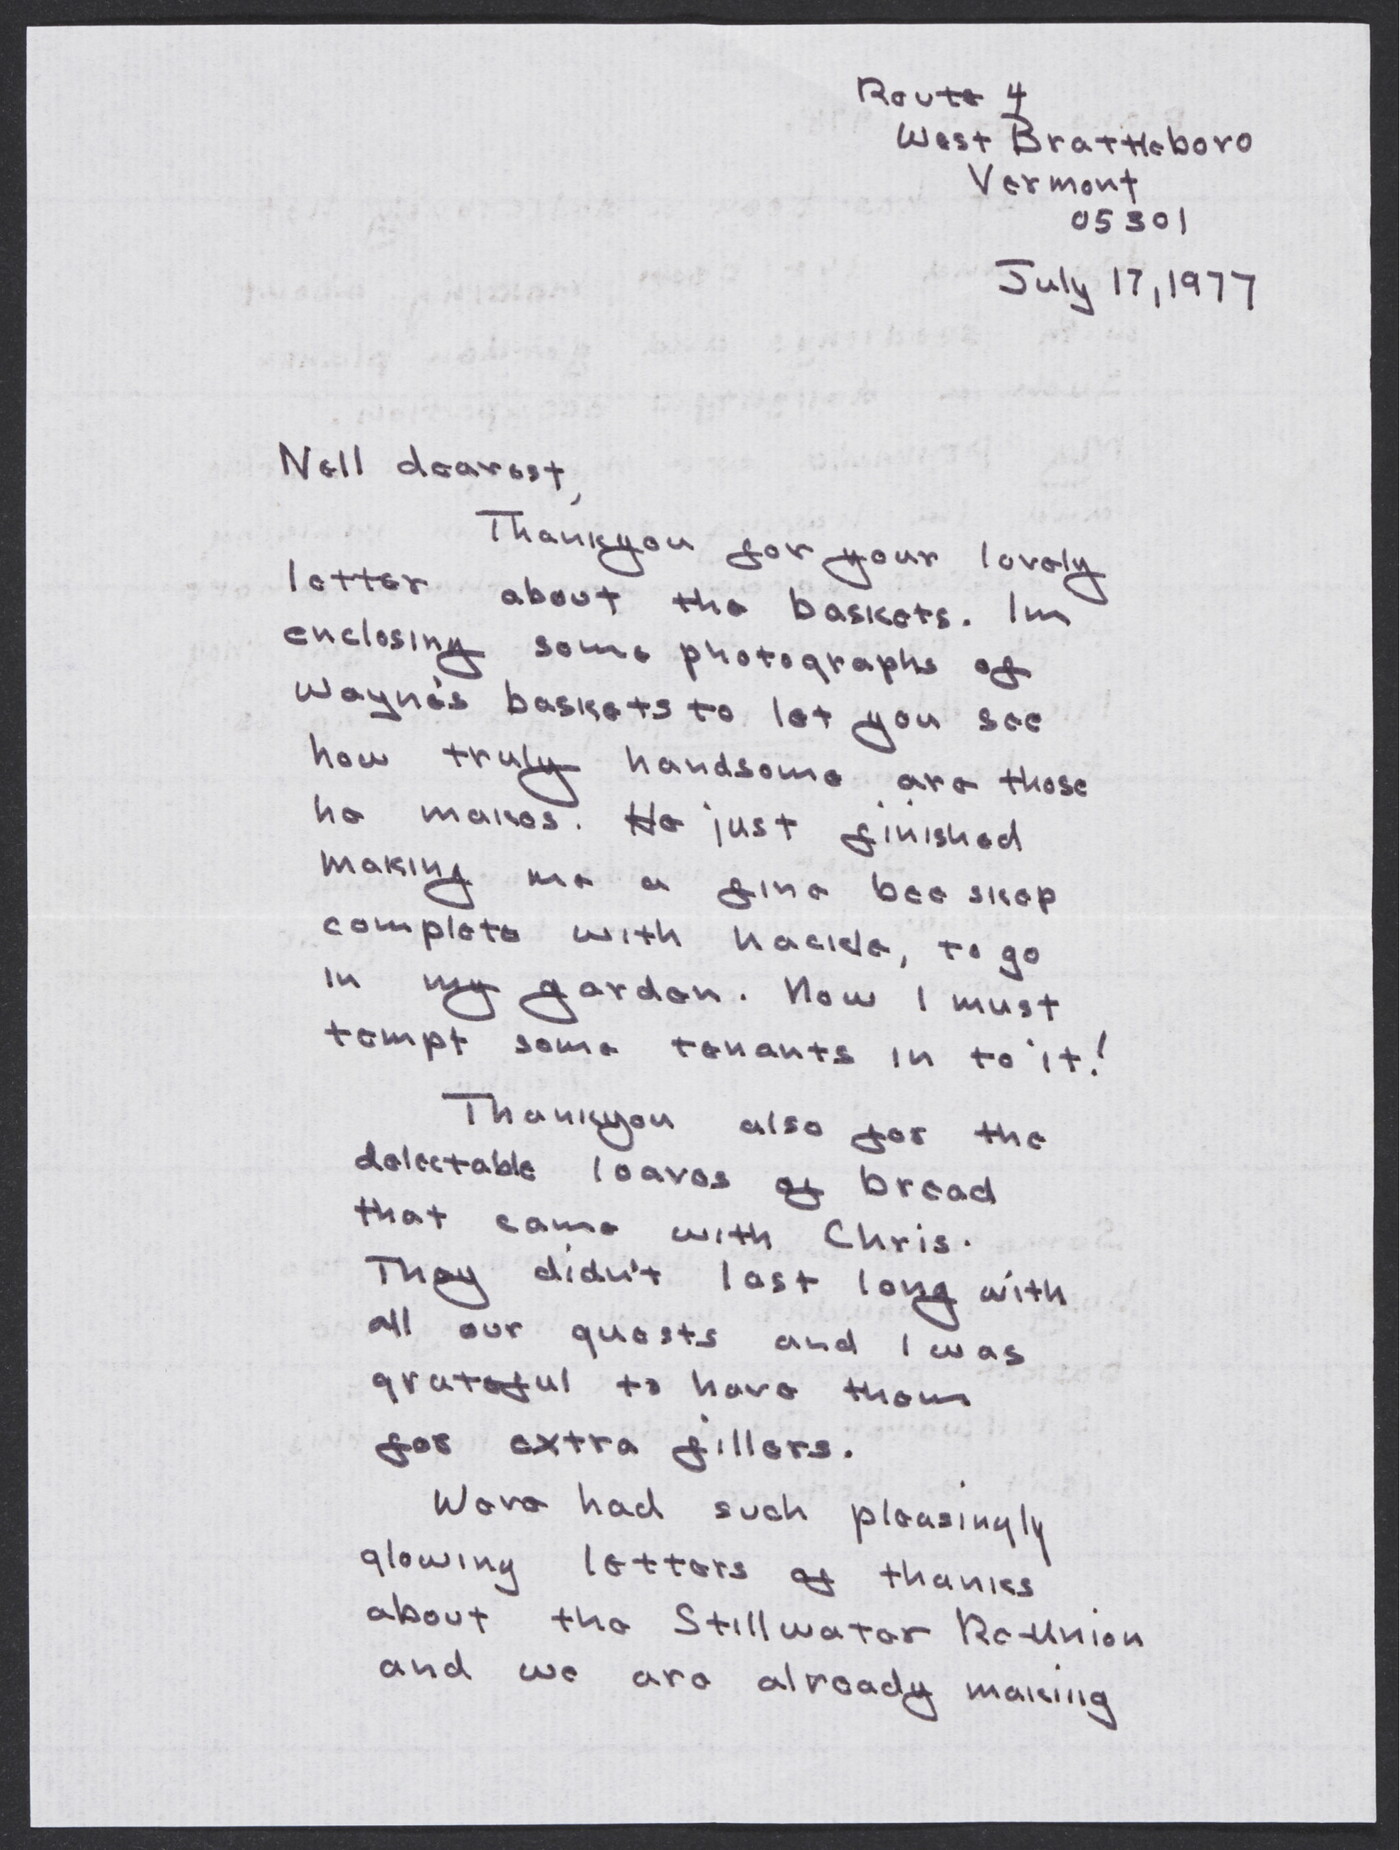 Route 4
West Brattleboro
Vermont
05301
July 17, 1977
Nell dearest,
Thankyou for your lovely
letter about the baskets. Im
enclosing some photographs of
Wayne's baskets to let you see
how truly handsome are those
he makes. He just finished
making me a fine bee skep
complete with hackle, to go
in my garden. Now I must
tempt some tenants in to it!
Thankyou also for the
delectable loaves of bread
that came with Chris.
They didn't last long with
all our guests and I was
grateful to have them
for extra fillers.
Weve had such pleasingly
glowing letters of thanks
about the Stillwater Re-Union
and we are already making